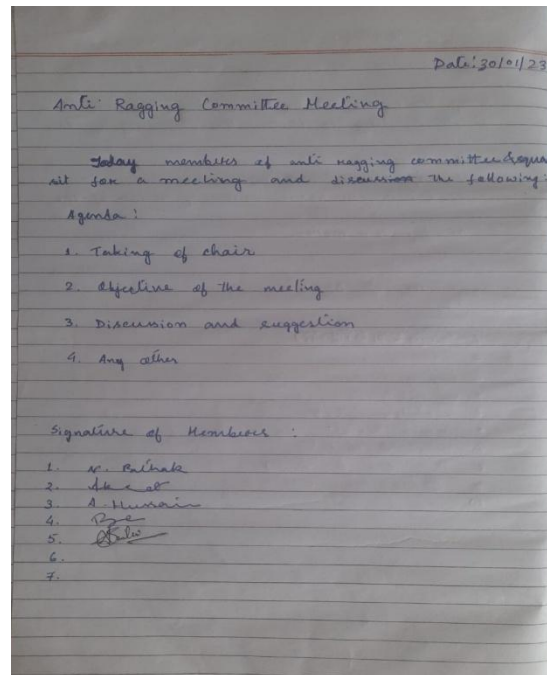 Date: 30/01/23
Anti Ragging Committee Meeting
Today members of anti ragging committee
sit for a meeting and discussion the following:
Agenda:
1. Taking of chair
2. Objective of the meeting
3. Discussion and suggestion
4. Any other
Signature of Members :
1. N. Pathak
2.
3. A. Hussain
4.
5.
6.
7.